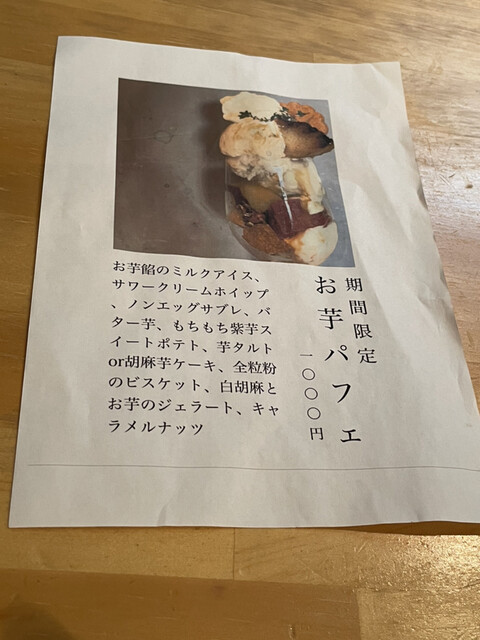 期間限定
お芋パフェ
一〇〇〇円
お芋餡のミルクアイス、
サワークリームホイップ
、ノンエッグサブレ、バ
ター芋、もちもち紫芋ス
イートポテト、芋タルト
or胡麻芋ケーキ、全粒粉
のビスケット、白胡麻と
お芋のジェラート、キャ
ラメルナッツ